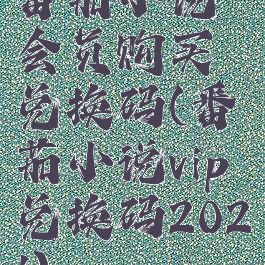 番茄小说
会员购买
兑换码(番
茄小说vip
兑换码202